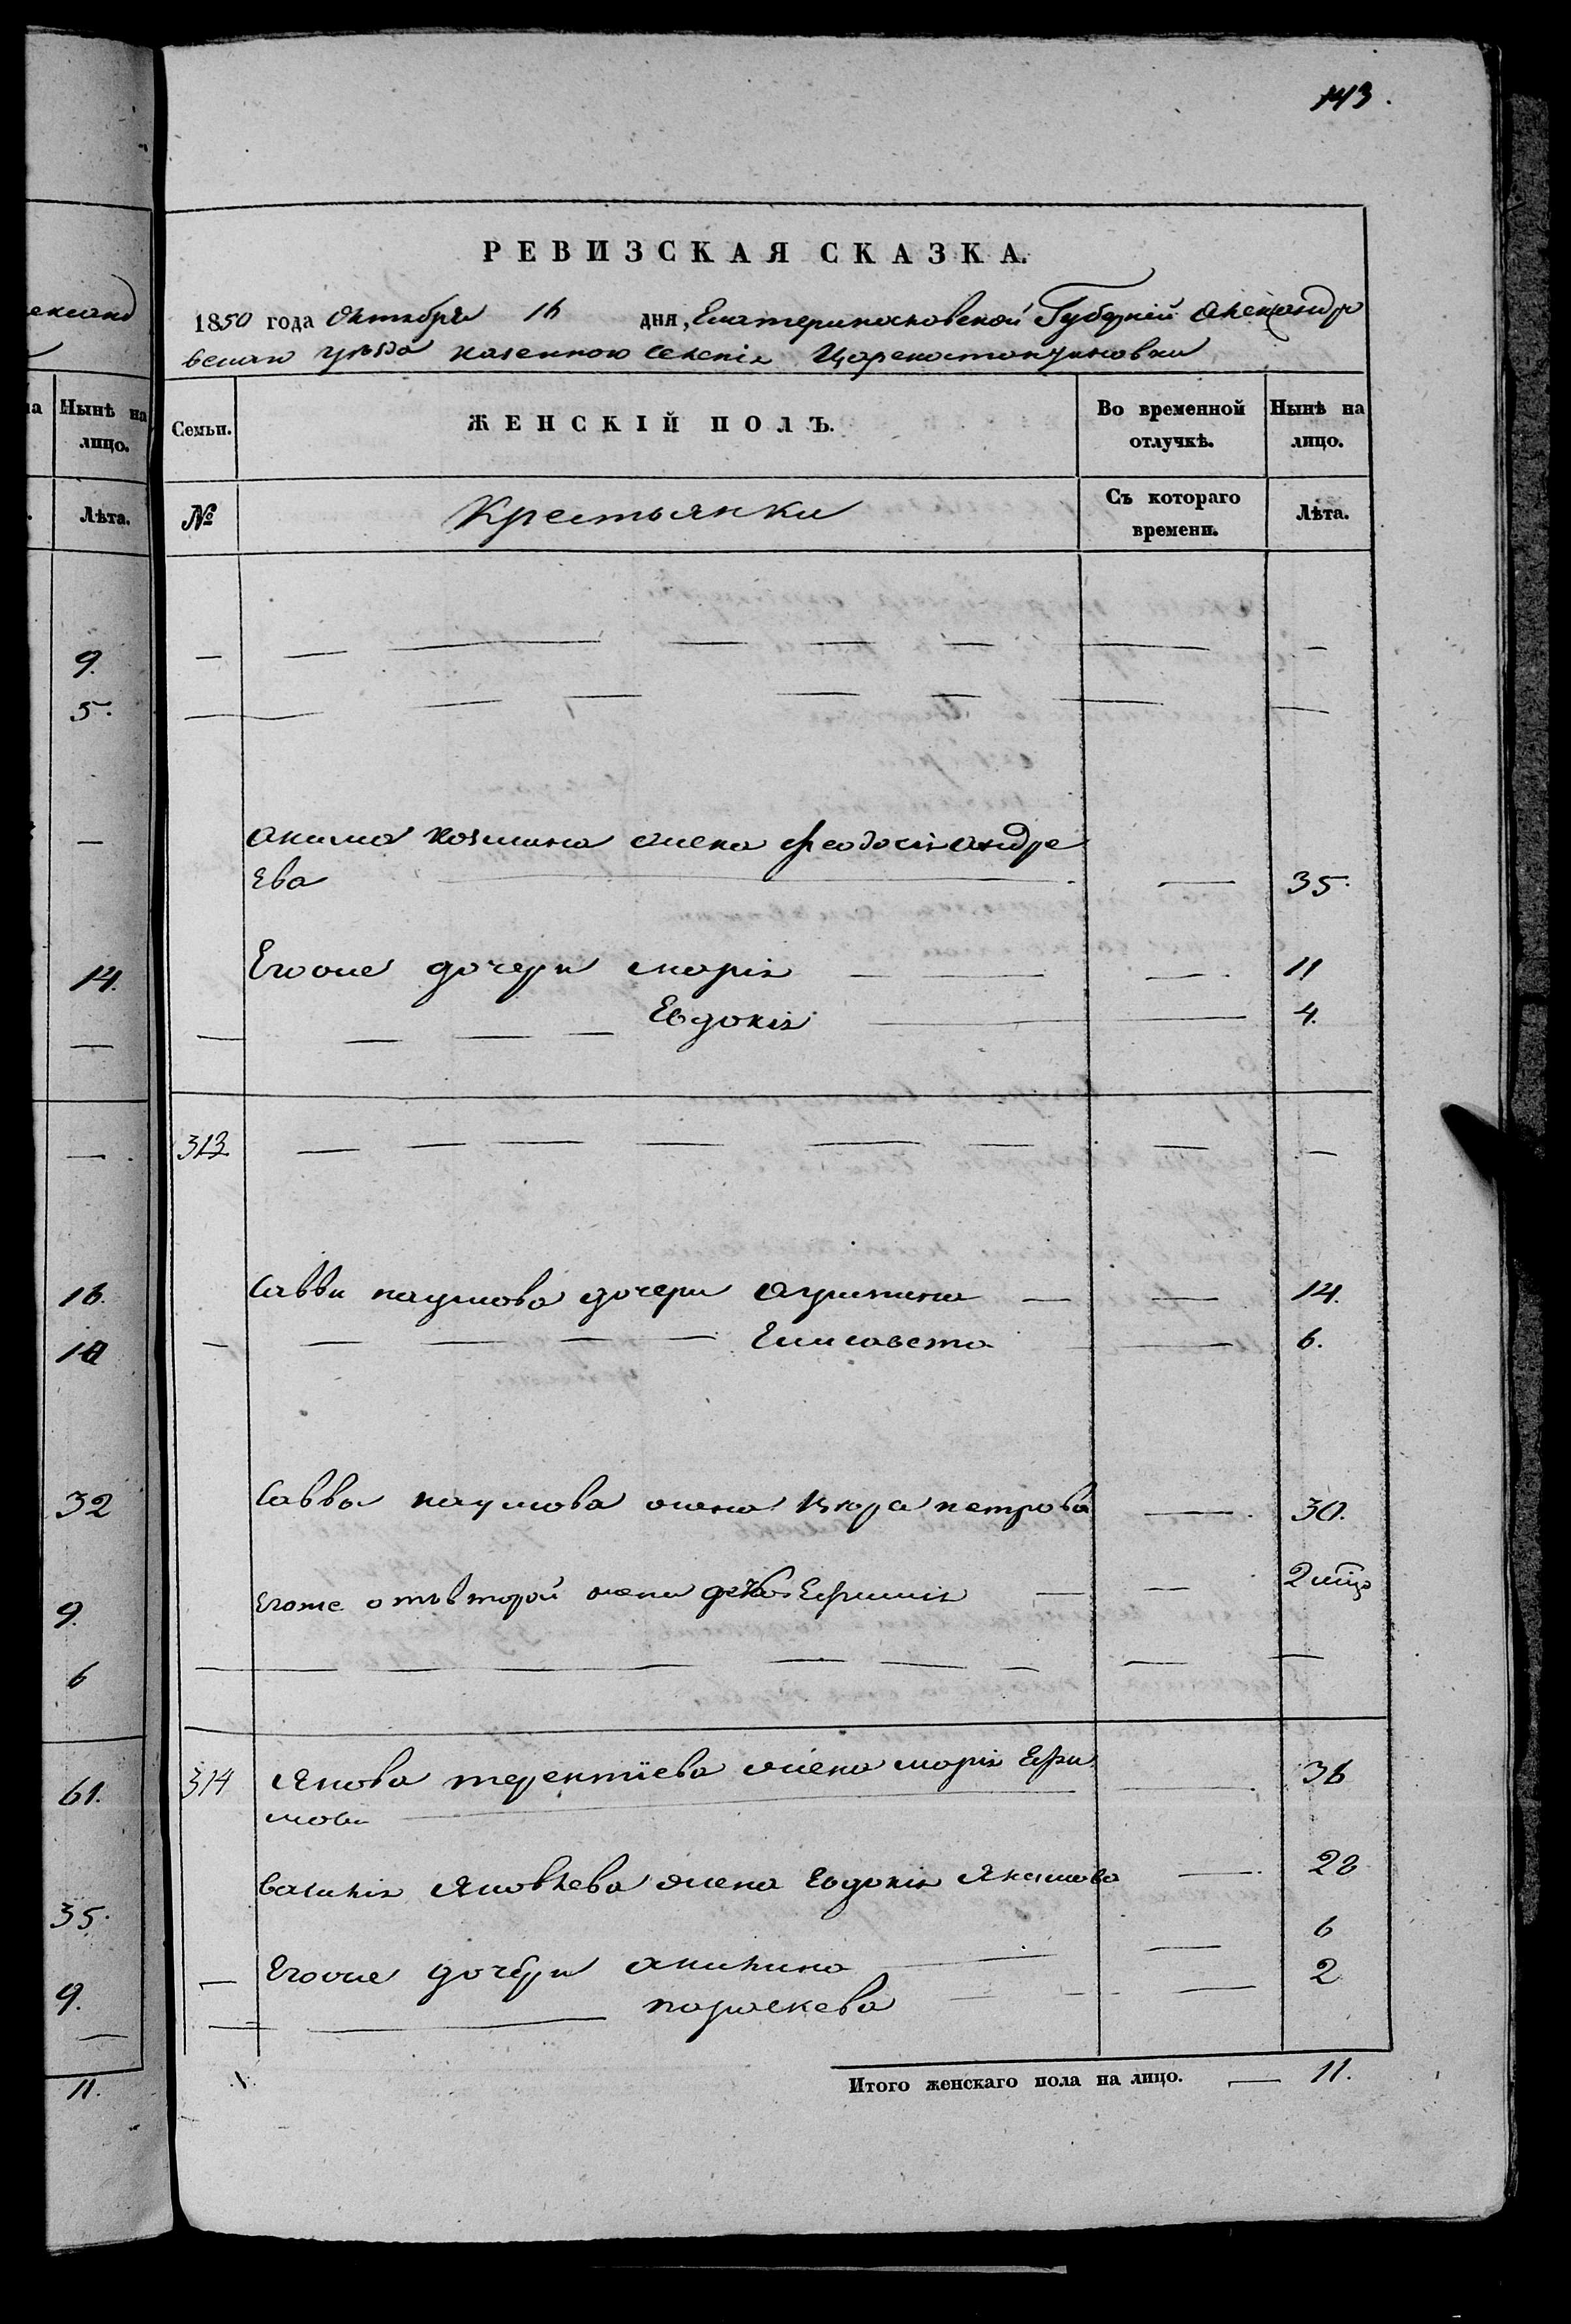 143.
РЕВИЗСКАЯ СКАЗКА.
1850 года Октября 16 дня, Екатеринославской Губерніи Александро
вскаго уѣзда казенного селенія Цареконстантиновки
ександ
Нынѣ на лицо.
Лѣта.
Семьи.
ЖЕНСКІЙ ПОЛЪ.
Во временной отлучкѣ.
Нынѣ на лицо.
№
Крестьянки
Съ котораго времени.
Лѣта.
9.
— — — — — — — —
5.
— — — — — — — —
Акима Козмина жена Феодосія Андре
ева — — 35.
14.
Егоже дочери Марія — — 11
— — — — Евдокія — — 4.
313. — — — — — — — —
16.
Саввы Наумова дочери Агрипина — — 14.
18
— — — — — Елисавета — 6.
32
Саввы Наумова жена Вѣра Петрова — 30.
9.
Егоже отъ второй жены дочь Ефимія — — 2 мѣц
6
— — — — — — — — —
61.
314 Якова Терентіева жена Марія Ефи
мова — — 36
Василія Яковлева жена Евдокія Якимова — 28
35.
Егоже дочери Акилина — — 6
9.
— — Параскева — — 2
11.
Итого женскаго пола на лицо. — 11.